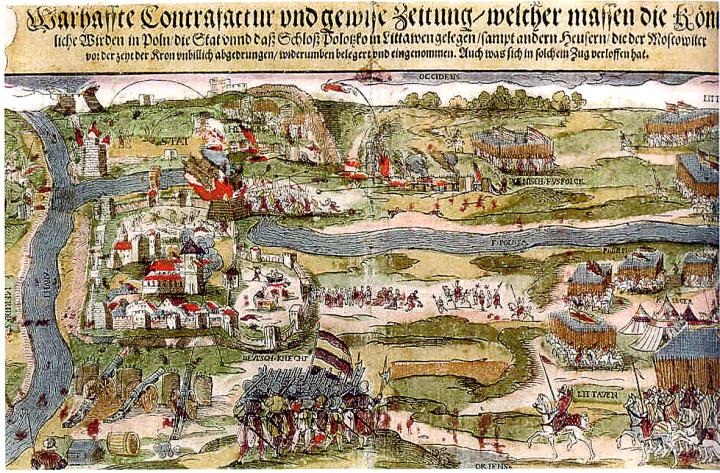 Warhaffte Contrafactur vnd gewise Zeitung/ welcher massen die Kön
liche Wirden in Poln/ die Stat vnnd daß Schloß Polotzko in Littawen gelegen/ sampt andern Heusern/ die der Moscowiter
vor der zeyt der Kron vnbillich abgedrungen/ widerumben belegert vnd eingenommen. Auch was sich in solchem Zug verloffen hat.
OCCIDENS
LITT
STAT
FVSFOLCK
LEGER
DEVTSCH KNECHT
LITTAVEN
ORIENS